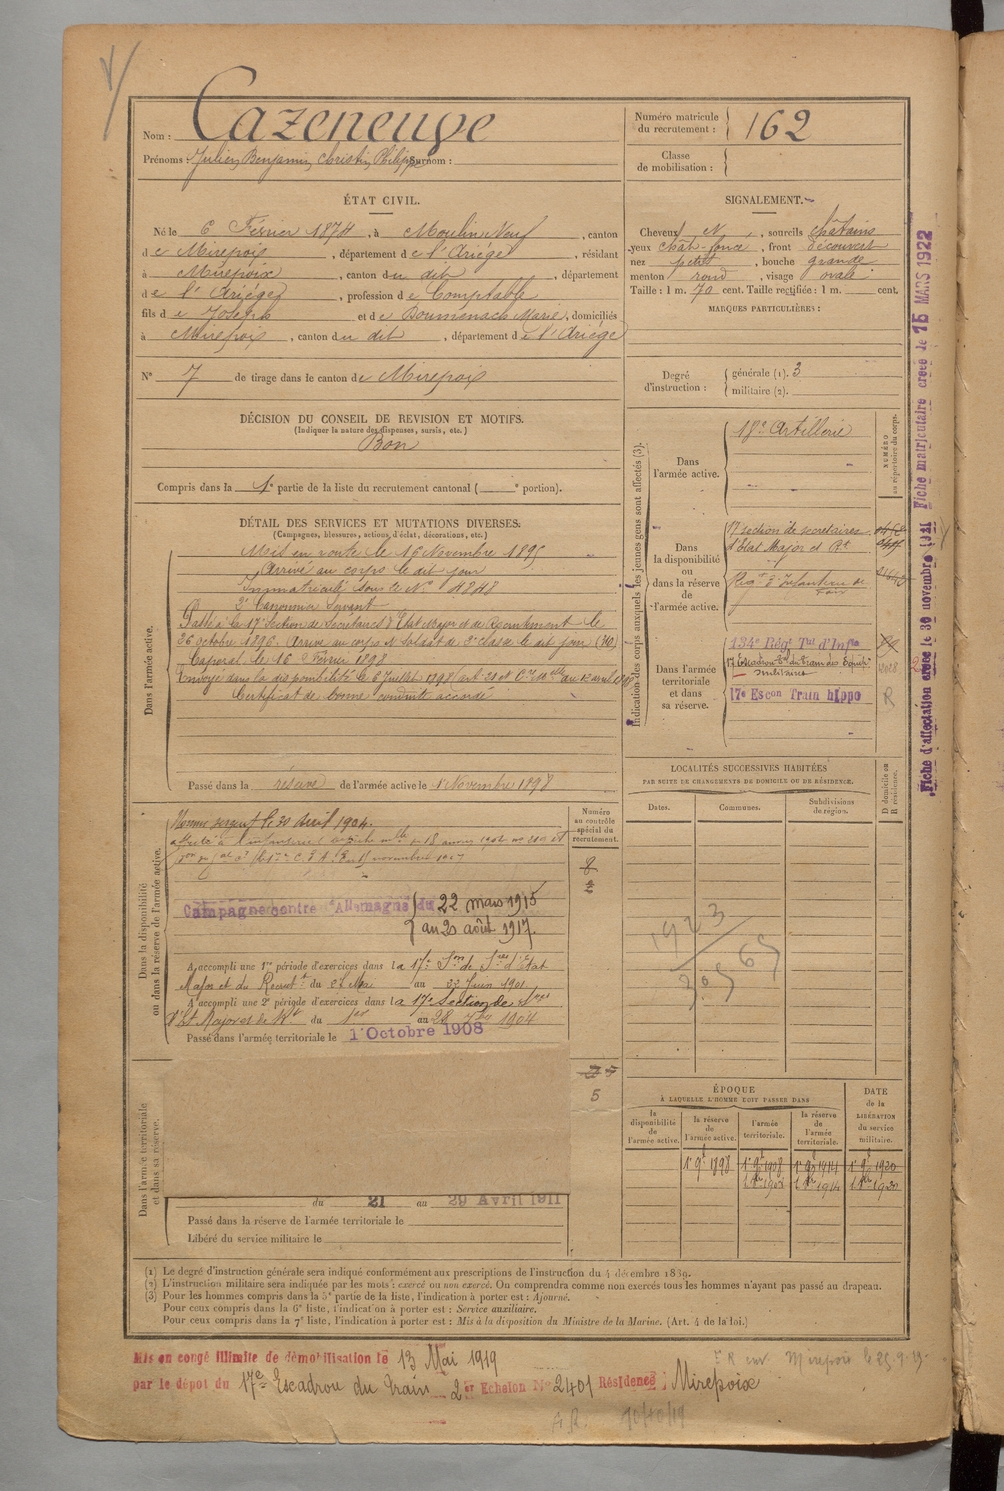 Nom : Cazeneuve
Prénoms : Julien, Benjamin, Christin, Philippe Surnom :
Numéro matricule du recrutement : 162
Classe de mobilisation :
ÉTAT CIVIL.
Né le 6 Février 1874, à Moulin Neuf, canton
de Mirepoix, département de l'Ariège, résidant
à Mirepoix, canton du dit, département
de l'Ariège, profession de Comptable
fils de Joseph et de Marie, domiciliés
à Mirepoix, canton du dit, département de l'Ariège
N° 7 de tirage dans le canton de Mirepoix
DÉCISION DU CONSEIL DE REVISION ET MOTIFS.
(Indiquer la nature des dispenses, sursis, etc.)
Bon
Compris dans la 1e partie de la liste du recrutement cantonal ( e portion).
SIGNALEMENT.
Cheveux N, sourcils châtains
yeux chât-foncé, front découvert
nez petit, bouche grande
menton rond, visage ovale
Taille : 1 m. 70 cent. Taille rectifiée : 1 m. cent.
MARQUES PARTICULIÈRES :
Degré d'instruction : générale (1). 3
militaire (2).
Indication des corps auxquels les jeunes gens sont affectés (3).
NUMÉRO au répertoire du corps.
Dans l'armée active.
18e Artillerie
Dans la disponibilité ou dans la réserve de l'armée active.
17 section de secrétaires
d'Etat Major et Rt
Regt d'Infanterie de
Foix
Dans l'armée territoriale et dans sa réserve.
134e Régt Tal d'Infie
17 Escadron Tal du train des équip.
militaires
17e Escon Train hippo
R
DÉTAIL DES SERVICES ET MUTATIONS DIVERSES.
(Campagnes, blessures, actions d'éclat, décorations, etc.)
Dans l'armée active.
Mis en route le 16 Novembre 1895
Arrivé au corps le dit jour
Immatriculé sous le N° 4848
2e Canonnier Servant
Passé à la 17e Section de Secrétaires d'Etat Major et de Recrutement le
26 octobre 1896. Arrivé au corps et soldat de 2e classe le dit jour
Caporal le 16 Février 1898
Envoyé dans la disponibilité le 6 Juillet 1898
Certificat de bonne conduite accordé
Passé dans la réserve de l'armée active le 1er Novembre 1898
Dans la disponibilité ou dans la réserve de l'armée active.
Numéro au contrôle spécial du recrutement.
Nommé sergent le 30 Avril 1904.
Campagne contre l'Allemagne du 22 mars 1915
au 20 août 1917.
A accompli une 1re période d'exercices dans la 17e Son de Sres d'Etat
Major et du Recrutt du 27 Mai au 23 Juin 1901
A accompli une 2e période d'exercices dans la 17e Section de Sres
d'Et Major et de Rt du 1er au 28 7bre 1904
Passé dans l'armée territoriale le 1 Octobre 1908
Dans l'armée territoriale et dans sa réserve.
5
du 21 au 29 Avril 1911
Passé dans la réserve de l'armée territoriale le
Libéré du service militaire le
LOCALITÉS SUCCESSIVES HABITÉES
PAR SUITE DE CHANGEMENTS DE DOMICILE OU DE RÉSIDENCE.
D domicile ou R résidence.
Dates. Communes. Subdivisions de région.
1923
ÉPOQUE
À LAQUELLE L'HOMME DOIT PASSER DANS
DATE de la LIBÉRATION du service militaire.
la disponibilité de l'armée active. la réserve de l'armée active. l'armée territoriale. la réserve de l'armée territoriale.
(1) Le degré d'instruction générale sera indiqué conformément aux prescriptions de l'instruction du 4 décembre 1889.
(2) L'instruction militaire sera indiquée par les mots : exercé ou non exercé. On comprendra comme non exercés tous les hommes n'ayant pas passé au drapeau.
(3) Pour les hommes compris dans la 5e partie de la liste, l'indication à porter est : Ajourné.
Pour ceux compris dans la 6e liste, l'indication à porter est : Service auxiliaire.
Pour ceux compris dans la 7e liste, l'indication à porter est : Mis à la disposition du Ministre de la Marine. (Art. 4 de la loi.)
Mis en congé illimité de démobilisation le 13 Mai 1919
par le dépot du 17e Escadron du Train 2er Echelon N° 2401 Résidence : Mirepoix
Mirepoix le 25-9-19
10/10/19
Fiche matriculaire créée le 15 MARS 1922
Fiche d'affectation créée le 30 novembre